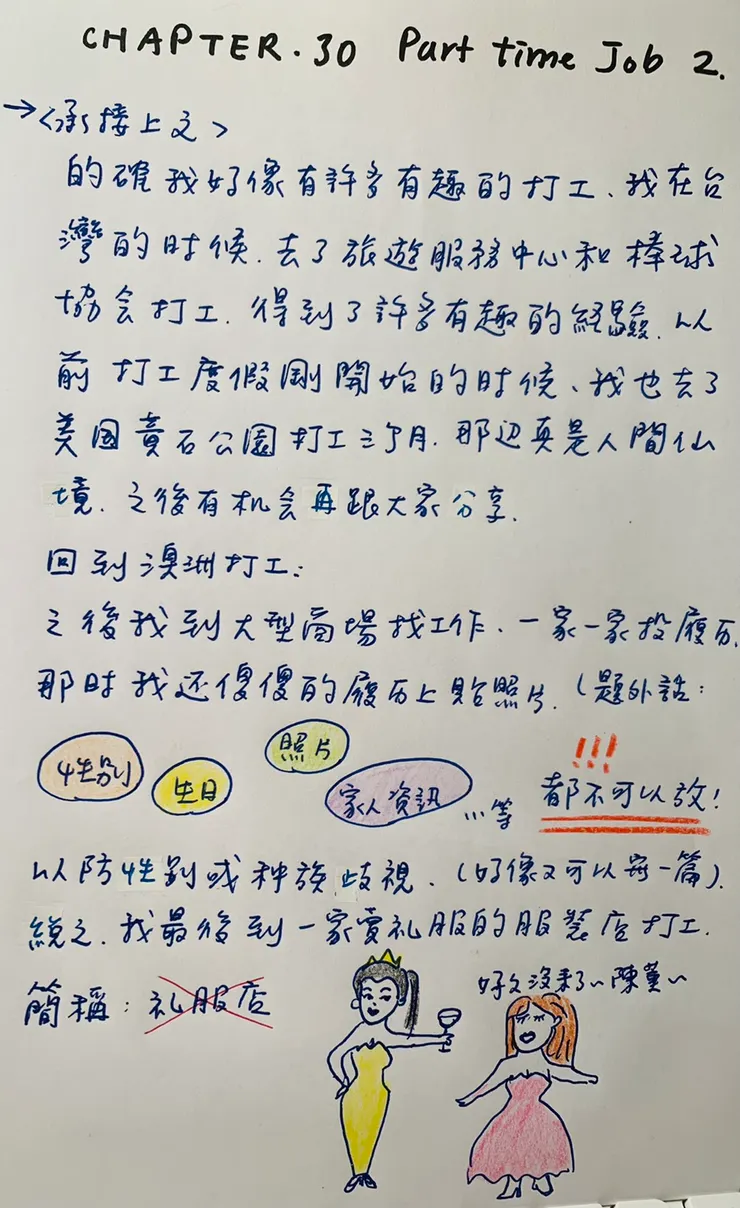 CHAPTER.30 Part time Job 2.
→<承接上文>
的確我好像有許多有趣的打工、我在台
灣的时候.去了旅遊服務中心和棒球
協会打工.得到了許多有趣的経驗.以
前打工度假剛開始的时候、我也去了
美国黄石公園打工三个月.那辺真是人間仙
境.之後有机会再跟大家分享.
回到澳洲打工:
之後我到大型商場找工作、一家一家投履历.
那时我还傻傻的履历上貼照片.(題外話:
性別 生日 照片 家人資訊 ...等 !!! 都不可以放!
以防性别或种族歧視.(好像又可以寫一篇).
総之.我最後到一家賣礼服的服裝店打工.
簡稱:礼服店
好久沒來了~陳董~